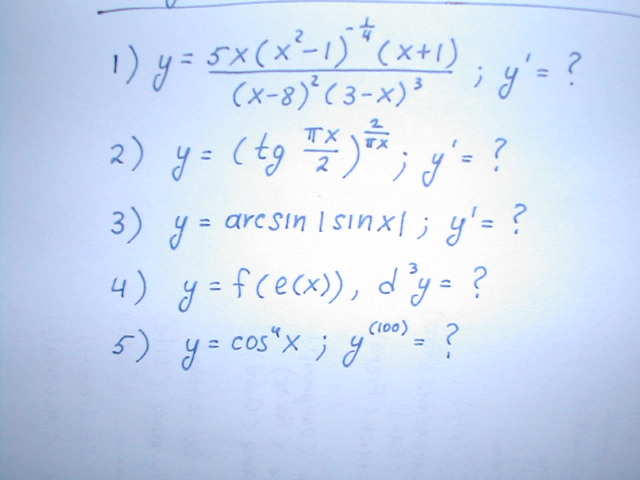 1) y = 5x(x²-1)^(-1/4) (x+1) / (x-8)² (3-x)³ ; y' = ?
2) y = (tg πx/2)^(2/πx) ; y' = ?
3) y = arcsin |sinx| ; y' = ?
4) y = f(e(x)), d³y = ?
5) y = cos⁴x ; y⁽¹⁰⁰⁾ = ?